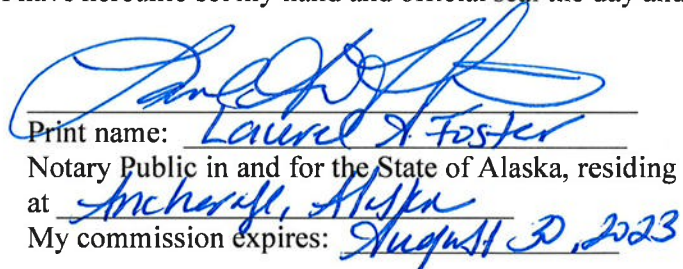 I have hereunto set my hand and official seal the day and
Print name: Laurel A Foster
Notary Public in and for the State of Alaska, residing
at Anchorage, Alaska
My commission expires: August 30, 2023